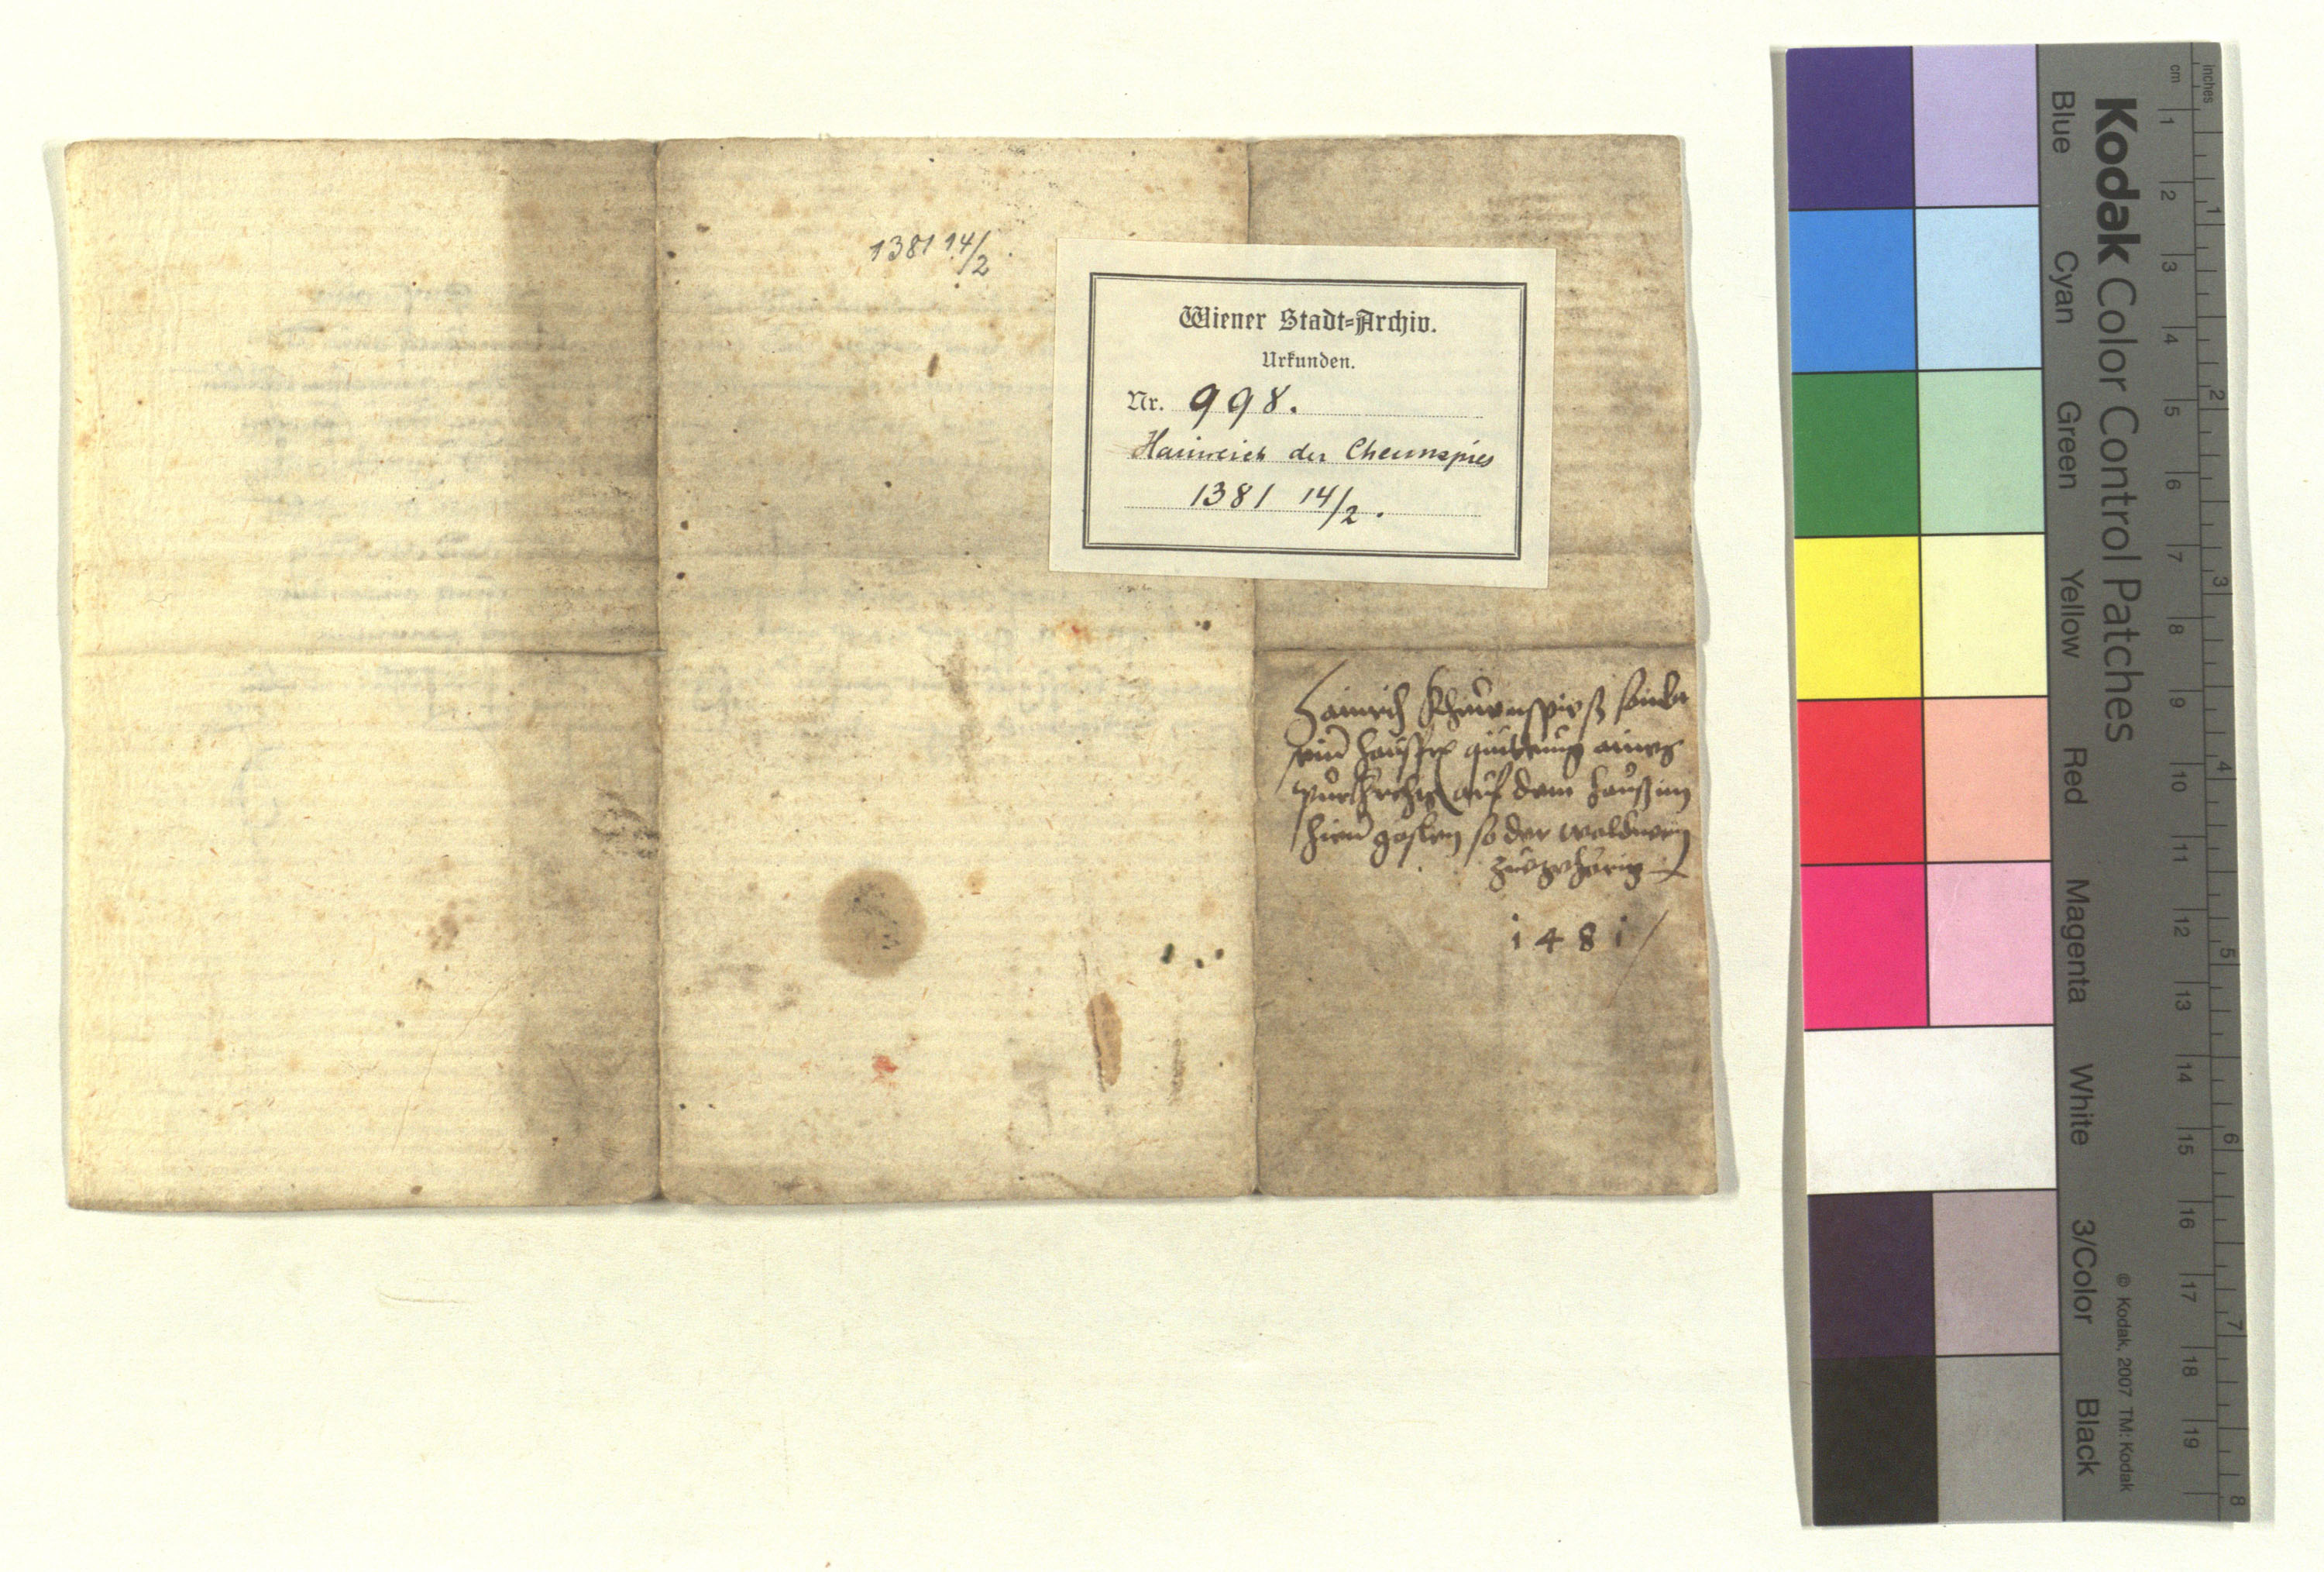 1381 14/2.
Wiener Stadt=Archiv.
Urkunden.
Nr. 998.
Hainreich der Cheunspies
1381 14/2.
Hainrich Kheünspieß
hausfr quittung aines
purkhrechtz auf dem hauß im
so der
zuegehörig
i48i
Kodak Color Control Patches
Blue Cyan Green Yellow Red Magenta White 3/Color Black
© Kodak, 2007 TM: Kodak
cm 1 2 3 4 5 6 7 8 9 10 11 12 13 14 15 16 17 18 19
inches 1 2 3 4 5 6 7 8